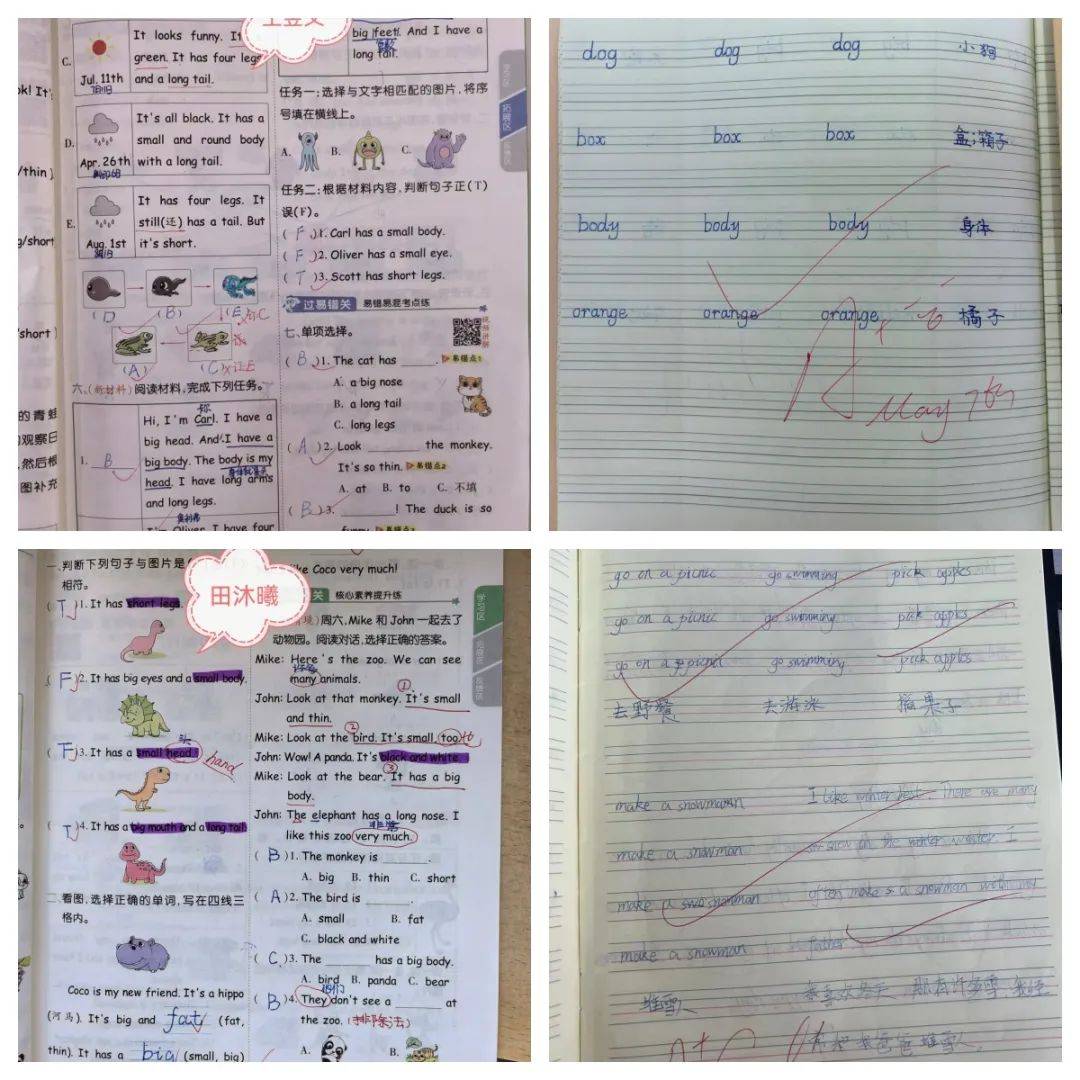 C.
Jul. 11th
7月11日
It looks funny. It
green. It has four legs
and a long tail.
D.
Apr. 26th
It's all black. It has a
small and round body
with a long tail.
E.
Aug. 1st
It has four legs. It
still(还) has a tail. But
it's short.
(D (B) (E
(A) (C)
六、(新材料)阅读材料,完成下列任务。
1. B
Hi, I'm Carl. I have a
big head. And I have a
big body. The body is my
head. I have long arms
and long legs.
I'm Oliver. I have four
big feet. And I have a
long tail.
任务一:选择与文字相匹配的图片,将序
号填在横线上。
A. B. C.
任务二:根据材料内容,判断句子正(T)
误(F)。
( F )1. Carl has a small body.
( F )2. Oliver has a small eye.
( T )3. Scott has short legs.
过易错关 易错易混考点练
七、单项选择。
( B )1. The cat has ____. 易错点1
A. a big nose
B. a long tail
C. long legs
( A )2. Look ____ the monkey.
It's so thin. 易错点2
A. at B. to C. 不填
( B )3. ____! The duck is so
拓展区
dog dog dog 小狗
box box box 盒;箱子
body body body 身体
orange orange orange 橘子
May 7th
田沐曦
一、判断下列句子与图片是
相符。
( T )1. It has short legs.
( F )2. It has big eyes and a small body.
( F )3. It has a small head. 头
hand
( T )4. It has a big mouth and a long tail.
二、看图,选择正确的单词,写在四线三
格内。
Coco is my new friend. It's a hippo
(河马). It's big and fat (fat,
thin). It has a big (small, big)
ke Coco very much!
关 核心素养提升练
周六,Mike 和 John 一起去了
动物园。阅读对话,选择正确的答案。
Mike: Here's the zoo. We can see
many animals.
许多
John: Look at that monkey. It's small
and thin.
①
Mike: Look at the bird. It's small, too.
②
John: Wow! A panda. It's black and white.
Mike: Look at the bear. It has a big
body.
③
John: The elephant has a long nose. I
like this zoo very much.
非常
( B )1. The monkey is ____.
A. big B. thin C. short
( A )2. The bird is ____.
A. small B. fat
C. black and white
( C )3. The ____ has a big body.
A. bird B. panda C. bear
( B )4. They don't see a ____ at
他们
the zoo. (排除法)
A. B.
go on a picnic go swimming pick apples
go on a picnic go swimming pick apples
go on a picnic go swimming pick apples
去野餐 去游泳 摘果子
make a snowman I like winter best. There are many
make a snowman snow in the winter. I
make a snowman often make a snowman with my
make a snowman father
堆雪人